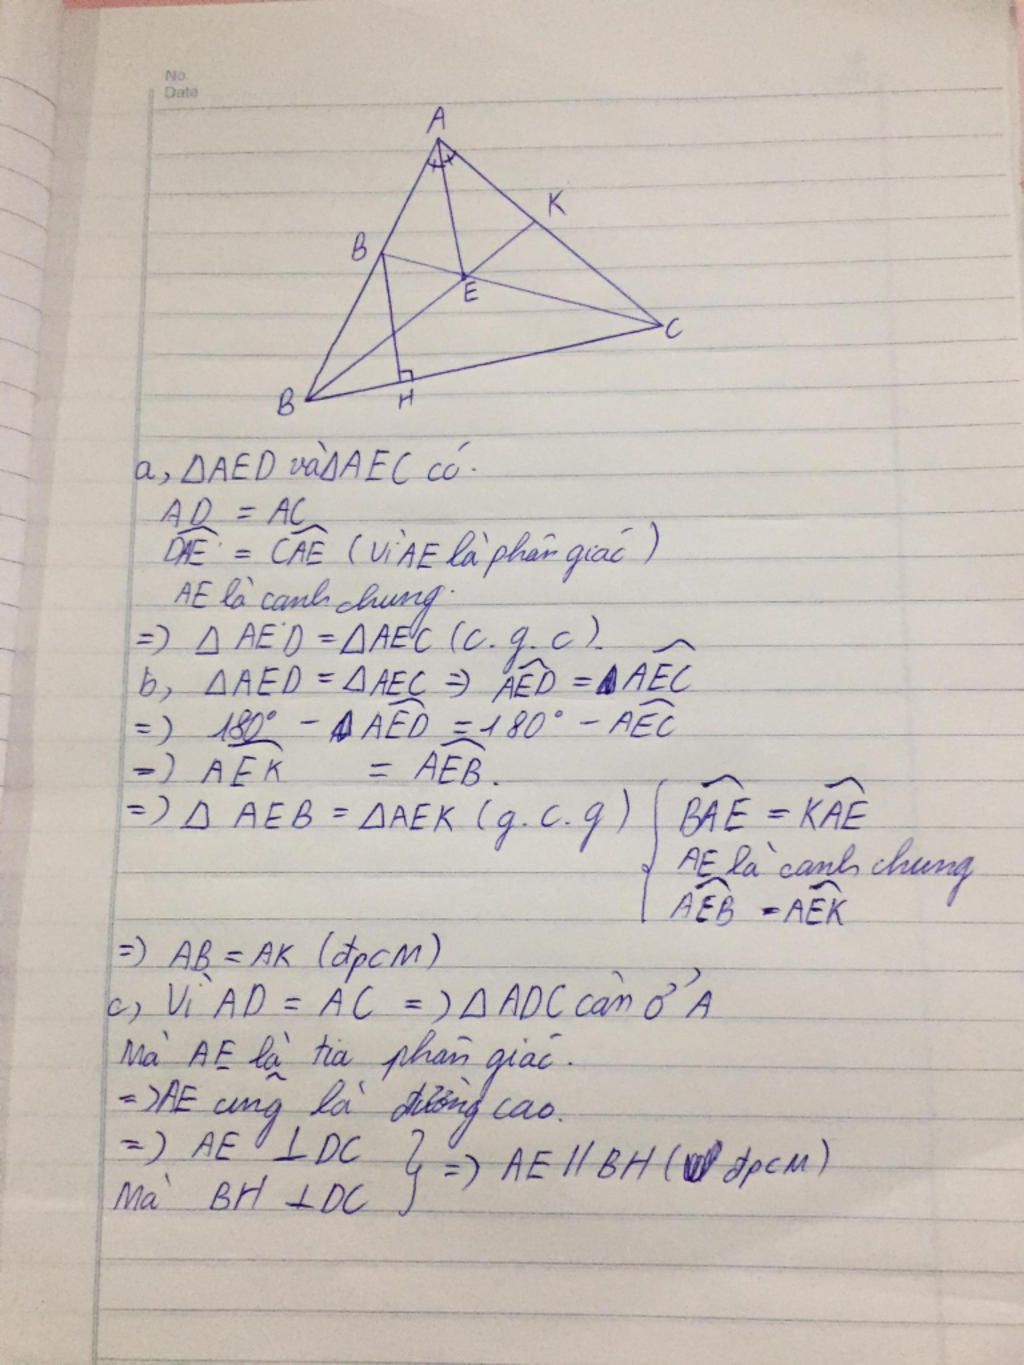 No.
Date
A
K
B
E
C
B
H
a, ΔAED và ΔAEC có.
AD = AC
DAE^ = CAE^ (vì AE là phân giác)
AE là cạnh chung.
=) Δ AED = ΔAEC (c. g. c).
b, ΔAED = ΔAEC => AED^ = AEC^
=) 180° - AED^ = 180° - AEC^
=) AEK^ = AEB^.
=) Δ AEB = ΔAEK (g. c. g) { BAE^ = KAE^
AE là cạnh chung
AEB^ = AEK^
=) AB = AK (đpcM)
c, Vì AD = AC =) Δ ADC cân ở A
Mà AE là tia phân giác.
=> AE cũng là đường cao.
=) AE ⊥ DC } =) AE // BH ( đpcM)
Mà BH ⊥ DC